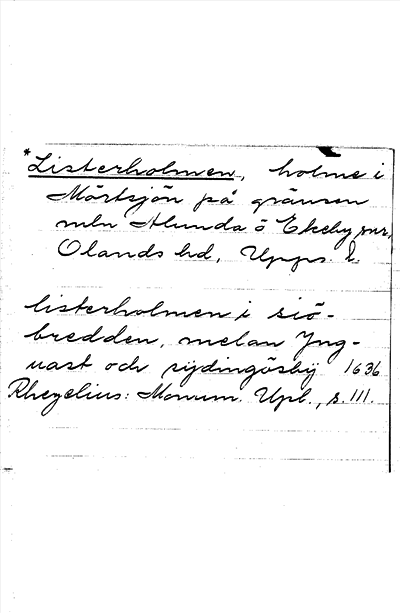 *Listerholmen, holme i
Mörtsjön på gränsen
mln Alunda o Ekeby snr,
Olands hd, Upps. l.
listerholmen i siö-
bredden, melan Yng-
uast och rijdingösbÿ 1636
Rhezelius: Monum. Upl., s. 111.